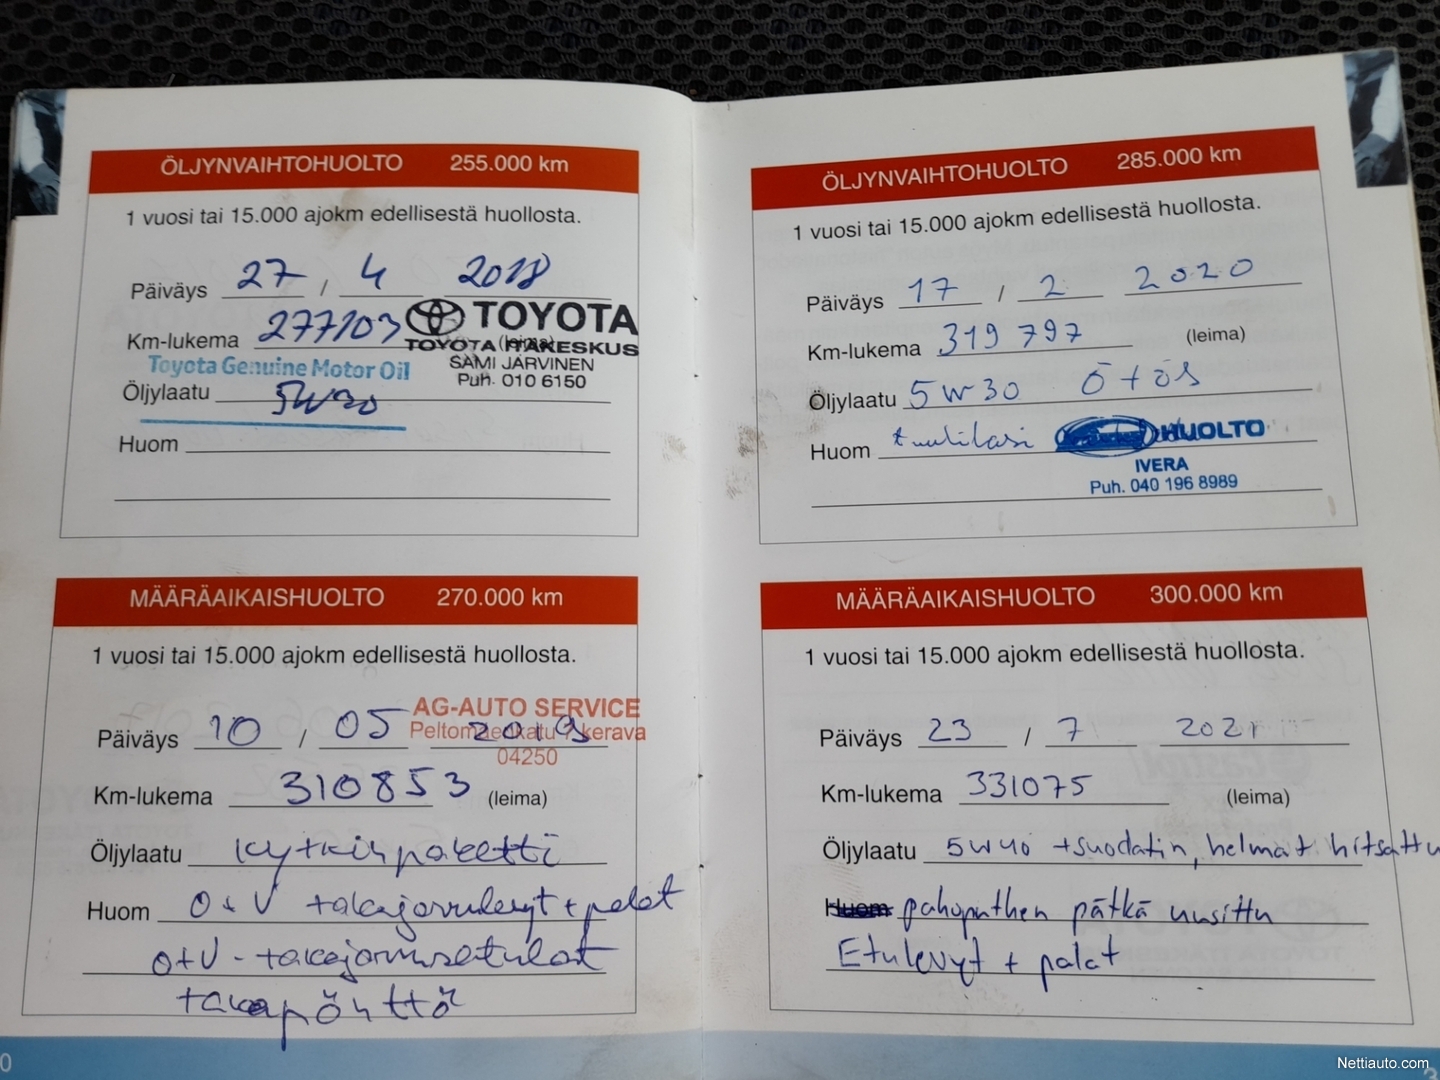 ÖLJYNVAIHTOHUOLTO 255.000 km
1 vuosi tai 15.000 ajokm edellisestä huollosta.
Päiväys 27 / 4 2018
Km-lukema 277103 (leima)
TOYOTA
TOYOTA ITÄKESKUS
SAMI JÄRVINEN
Puh. 010 6150
Toyota Genuine Motor Oil
Öljylaatu 5W30
Huom
MÄÄRÄAIKAISHUOLTO 270.000 km
1 vuosi tai 15.000 ajokm edellisestä huollosta.
AG-AUTO SERVICE
Päiväys 10 / 05 2019
kerava
04250
Km-lukema 310853 (leima)
Öljylaatu kytkinpaketti
Huom O+V takajarrulevyt + palat
O+V - takajarrusatulat
takapönttö
0
ÖLJYNVAIHTOHUOLTO 285.000 km
1 vuosi tai 15.000 ajokm edellisestä huollosta.
Päiväys 17 / 2 2020
Km-lukema 319 797 (leima)
Öljylaatu 5W30 Ö+ös
Huom tuulilasi HUOLTO
IVERA
Puh. 040 196 8989
MÄÄRÄAIKAISHUOLTO 300.000 km
1 vuosi tai 15.000 ajokm edellisestä huollosta.
Päiväys 23 / 7 2021
Km-lukema 331075 (leima)
Öljylaatu 5W40 +suodatin, helmat hitsattu
Huom pakoputken pätkä uusittu
Etulevyt + palat
Nettiauto.com